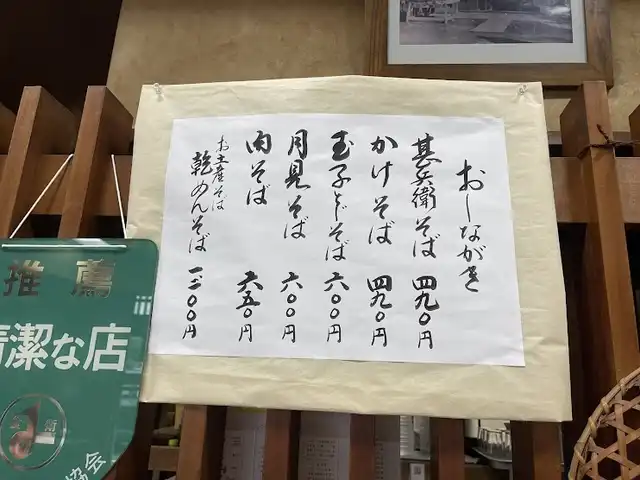 おしながき
甚兵衛そば 四九〇円
かけそば 四九〇円
玉子とじそば 六〇〇円
月見そば 六〇〇円
肉そば 六五〇円
お土産そば
乾めんそば 一三〇〇円
推薦
清潔な店
協会